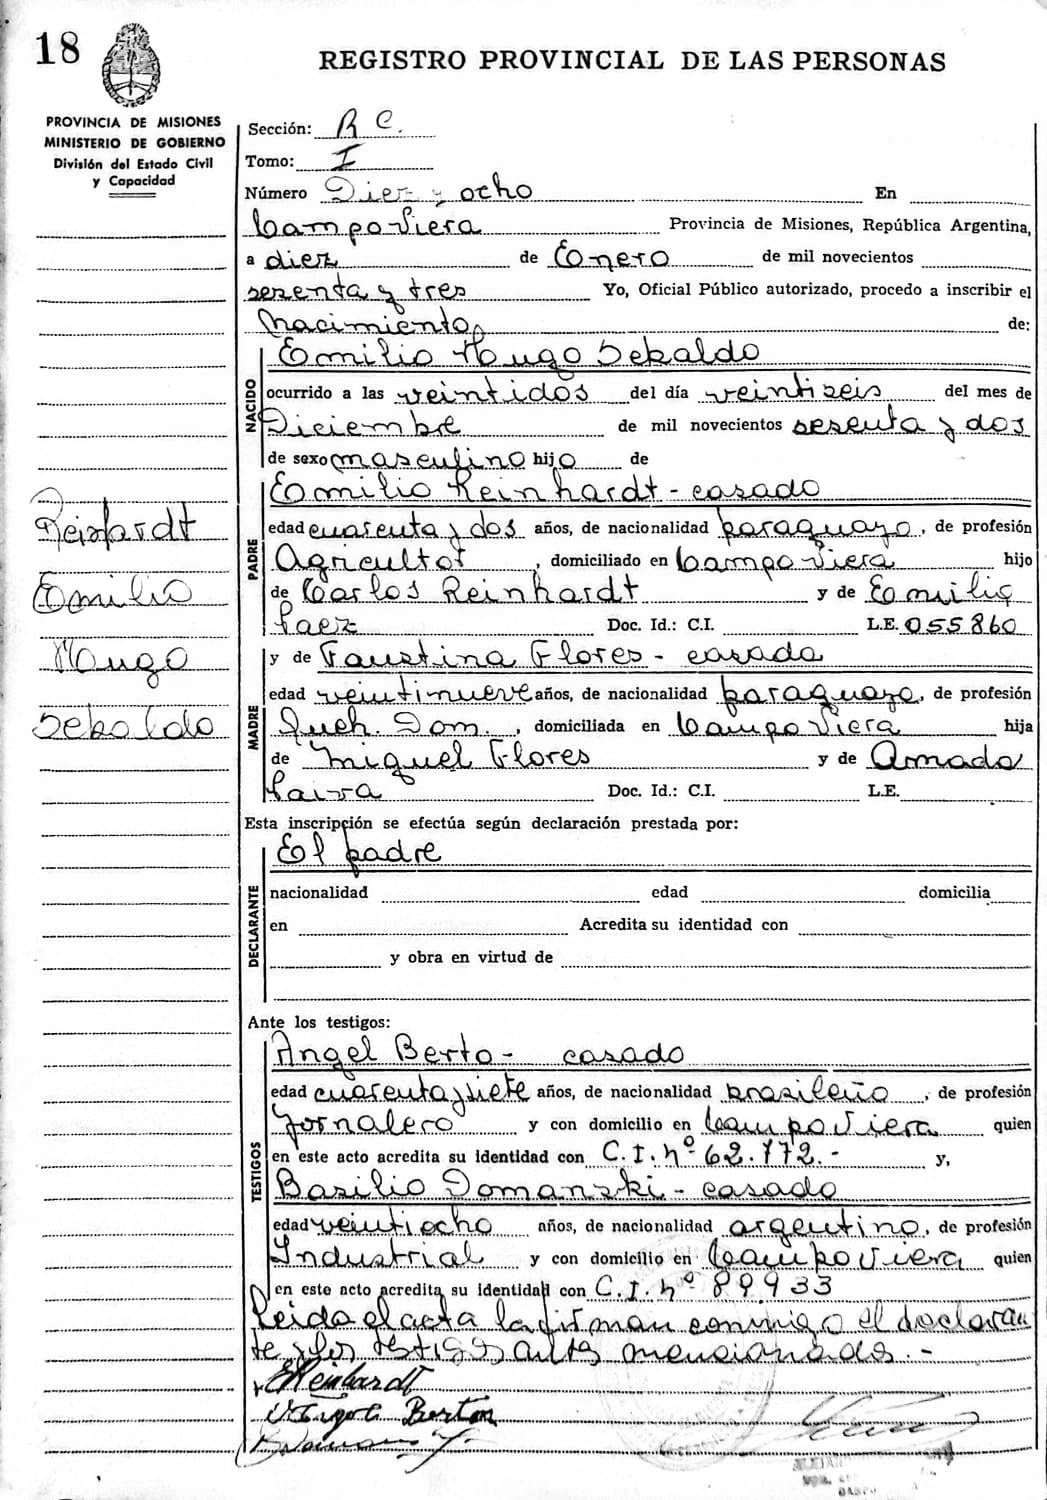 18
REGISTRO PROVINCIAL DE LAS PERSONAS
PROVINCIA DE MISIONES
MINISTERIO DE GOBIERNO
División del Estado Civil
y Capacidad
Sección: R C.
Tomo: I
Número Diez y ocho En
Campo Viera Provincia de Misiones, República Argentina,
a diez de Enero de mil novecientos
sesenta y tres Yo, Oficial Público autorizado, procedo a inscribir el
Nacimiento de:
NACIDO
Emilio Hugo Sebaldo
ocurrido a las veintidos del día veintiseis del mes de
Diciembre de mil novecientos sesenta y dos
de sexo masculino hijo de
PADRE
Emilio Reinhardt - casado
edad cuarenta y dos años, de nacionalidad paraguayo, de profesión
Agricultor, domiciliado en Campo Viera hijo
de Carlos Reinhardt y de Emilia
Paez Doc. Id.: C.I. L.E. 055860
MADRE
y de Faustina Flores - casada
edad veintinueve años, de nacionalidad paraguaya, de profesión
Queh. Dom., domiciliada en Campo Viera hija
de Miguel Flores y de Amada
Paiva Doc. Id.: C.I. L.E.
Reinhardt
Emilio
Hugo
Sebaldo
Esta inscripción se efectúa según declaración prestada por:
DECLARANTE
El padre
nacionalidad edad domicilia
en Acredita su identidad con
y obra en virtud de
Ante los testigos:
TESTIGOS
Angel Berto - casado
edad cuarenta y siete años, de nacionalidad brasileño, de profesión
Jornalero y con domicilio en Campo Viera quien
en este acto acredita su identidad con C.I. nº 62.172.- y,
Basilio Domanski - casado
edad veintiocho años, de nacionalidad argentino, de profesión
Industrial y con domicilio en Campo Viera quien
en este acto acredita su identidad con C.I. nº 89933
Leida el acta la firman conmigo el declaran
te y los testigos antes mencionados.-
E Reinhardt